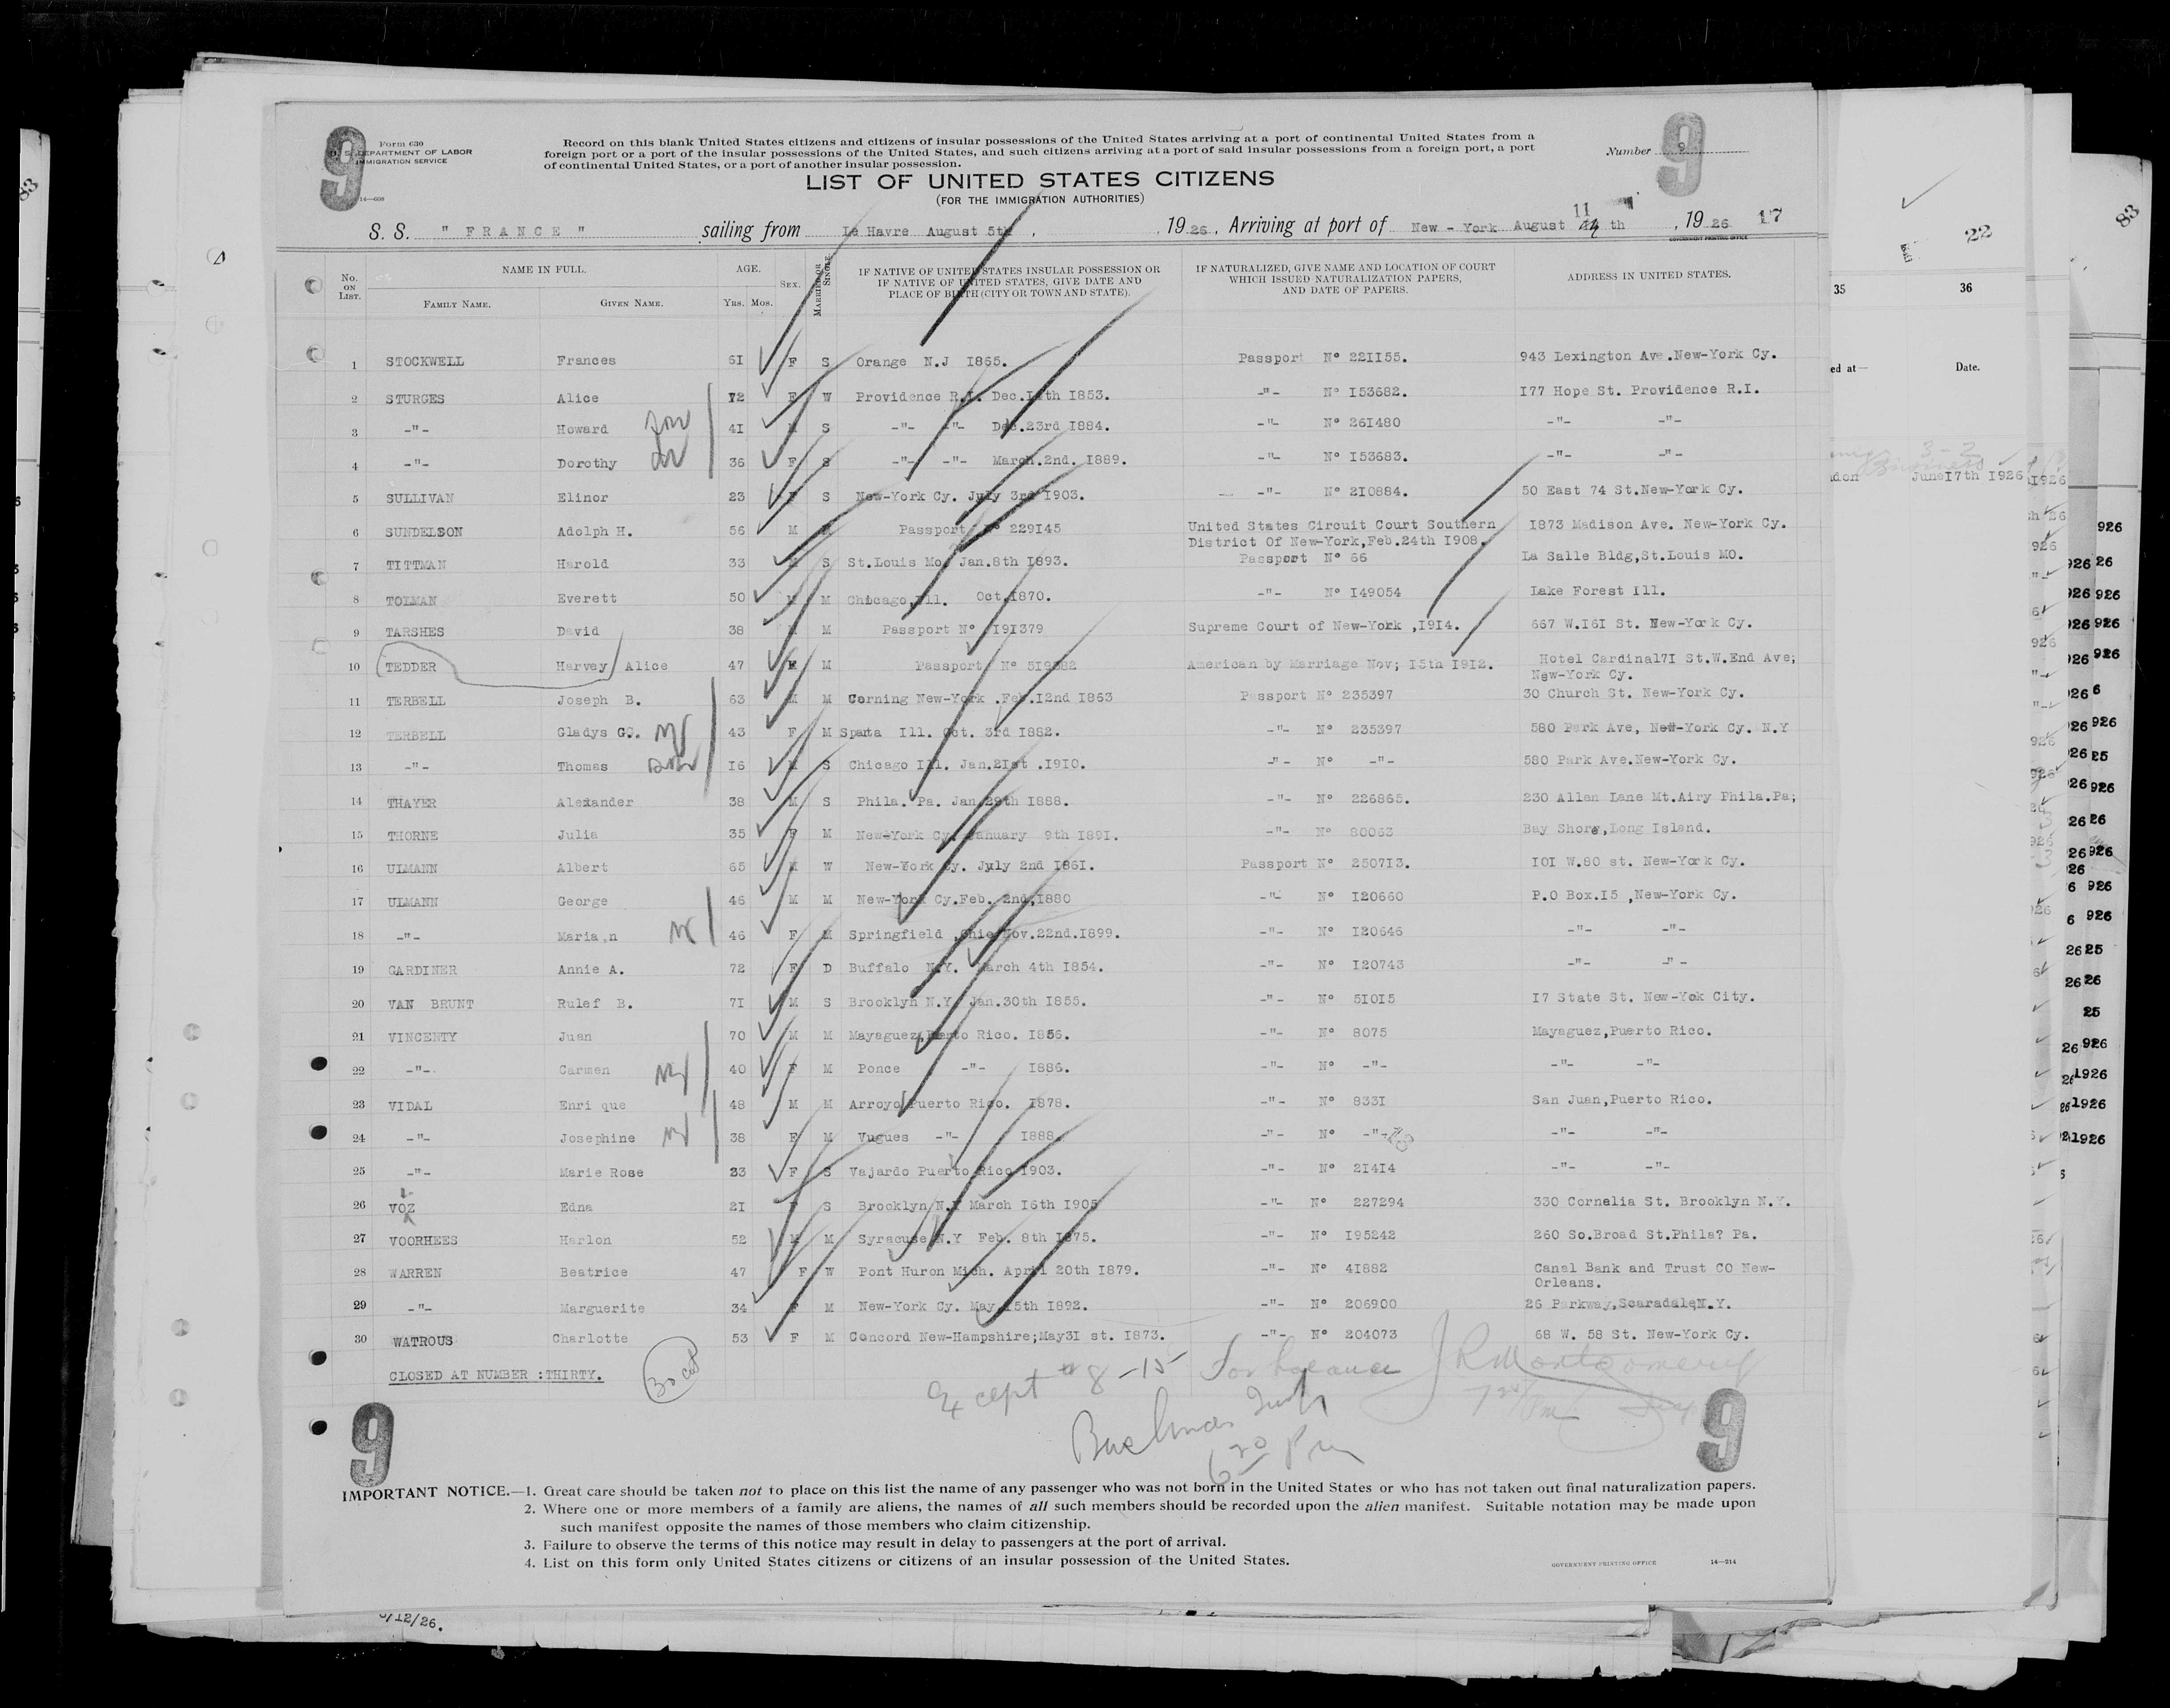 9
Form 630
U. S. DEPARTMENT OF LABOR
IMMIGRATION SERVICE
14—608
Record on this blank United States citizens and citizens of insular possessions of the United States arriving at a port of continental United States from a
foreign port or a port of the insular possessions of the United States, and such citizens arriving at a port of said insular possessions from a foreign port, a port
of continental United States, or a port of another insular possession.
Number 9
9
LIST OF UNITED STATES CITIZENS
(FOR THE IMMIGRATION AUTHORITIES)
S. S. " FRANCE " sailing from Le Havre August 5th , 1926, Arriving at port of New - York August 11 th , 1926 17
GOVERNMENT PRINTING OFFICE
No. ON LIST. NAME IN FULL. FAMILY NAME. GIVEN NAME. AGE. YRS. MOS. SEX. MARRIED OR SINGLE. IF NATIVE OF UNITED STATES INSULAR POSSESSION OR IF NATIVE OF UNITED STATES, GIVE DATE AND PLACE OF BIRTH (CITY OR TOWN AND STATE). IF NATURALIZED, GIVE NAME AND LOCATION OF COURT WHICH ISSUED NATURALIZATION PAPERS, AND DATE OF PAPERS. ADDRESS IN UNITED STATES.
1 STOCKWELL Frances 61 F S Orange N.J 1865. Passport N° 221155. 943 Lexington Ave.New-York Cy.
2 STURGES Alice 72 F W Providence R.I. Dec. 1853. -"- N° 153682. 177 Hope St. Providence R.I.
3 -"- Howard 41 M S -"- -"- Dec.23rd 1884. -"- N° 261480 -"- -"-
4 -"- Dorothy 36 F S -"- -"- March.2nd. 1889. -"- N° 153683. -"- -"-
5 SULLIVAN Elinor 23 F S New-York Cy. July 3rd 1903. -"- N° 210884. 50 East 74 St.New-York Cy.
6 SUNDELSON Adolph H. 56 M M Passport N° 229145 United States Circuit Court Southern 1873 Madison Ave. New-York Cy.
District Of New-York,Feb.24th 1908.
7 TITTMAN Harold 33 M S St.Louis Mo. Jan.8th 1893. Passport N° 66 La Salle Bldg,St.Louis MO.
8 TOLMAN Everett 50 M M Chicago,Ill. Oct.1870. -"- N° 149054 Lake Forest Ill.
9 TARSHES David 38 M M Passport N° 191379 Supreme Court of New-York ,1914. 667 W.161 St. New-York Cy.
10 TEDDER Harvey/ Alice 47 F M Passport N° American by Marriage Nov; 15th 1912. Hotel Cardinal71 St.W.End Ave;
New-York Cy.
11 TERBELL Joseph B. 63 M M Corning New-York .Feb.12nd 1863 Passport N° 235397 30 Church St. New-York Cy.
12 TERBELL Gladys G. 43 F M Sparta Ill. Oct. 3rd 1882. -"- N° 235397 580 Park Ave, New-York Cy. N.Y
13 -"- Thomas 16 M S Chicago Ill. Jan.21st .1910. -"- N° -"- 580 Park Ave.New-York Cy.
14 THAYER Alexander 38 M S Phila. Pa. Jan.29th 1888. -"- N° 226865. 230 Allen Lane Mt.Airy Phila.Pa;
15 THORNE Julia 35 F M New-York Cy. January 9th 1891. -"- N° 80063 Bay Shore,Long Island.
16 ULMANN Albert 65 M W New-York Cy. July 2nd 1861. Passport N° 250713. 101 W.80 st. New-York Cy.
17 ULMANN George 46 M M New-York Cy.Feb. 2nd,1880 -"- N° 120660 P.O Box.15 ,New-York Cy.
18 -"- Maria,n 46 F M Springfield ,Ohio Nov.22nd.1899. -"- N° 120646 -"- -"-
19 GARDINER Annie A. 72 F D Buffalo N.Y. March 4th 1854. -"- N° 120743 -"- -"-
20 VAN BRUNT Rulef B. 71 M S Brooklyn N.Y. Jan.30th 1855. -"- N° 51015 17 State St. New-Yok City.
21 VINCENTY Juan 70 M M Mayaguez,Puerto Rico. 1856. -"- N° 8075 Mayaguez,Puerto Rico.
22 -"-. Carmen 40 F M Ponce -"- 1886. -"- N° -"- -"- -"-
23 VIDAL Enri que 48 M M Arroyo Puerto Rico. 1878. -"- N° 8331 San Juan,Puerto Rico.
24 -"- Josephine 38 F M Vugues -"- 1888. -"- N° -"- -"- -"-
25 -"- Marie Rose 23 F S Vajardo Puerto Rico 1903. -"- N° 21414 -"- -"-
26 VOZ Edna 21 F S Brooklyn N.Y March 16th 1905 -"- N° 227294 330 Cornelia St. Brooklyn N.Y.
27 VOORHEES Harlon 52 M M Syracuse N.Y Feb. 8th 1875. -"- N° 195242 260 So.Broad St.Phila? Pa.
28 WARREN Beatrice 47 F W Pont Huron Mich. April 20th 1879. -"- N° 41882 Canal Bank and Trust CO New-
Orleans.
29 -"- Marguerite 34 F M New-York Cy. May 15th 1892. -"- N° 206900 26 Parkway,Scaradale,N.Y.
30 WATROUS Charlotte 53 F M Concord New-Hampshire;May31 st. 1873. -"- N° 204073 68 W. 58 St. New-York Cy.
CLOSED AT NUMBER :THIRTY.
Except # 8-15
6 20 Pm
9
9
IMPORTANT NOTICE.—1. Great care should be taken not to place on this list the name of any passenger who was not born in the United States or who has not taken out final naturalization papers.
2. Where one or more members of a family are aliens, the names of all such members should be recorded upon the alien manifest. Suitable notation may be made upon
such manifest opposite the names of those members who claim citizenship.
3. Failure to observe the terms of this notice may result in delay to passengers at the port of arrival.
4. List on this form only United States citizens or citizens of an insular possession of the United States.
GOVERNMENT PRINTING OFFICE 14—214
22
35 36
ed at— Date.
June17th 1926
83
83
/12/26.